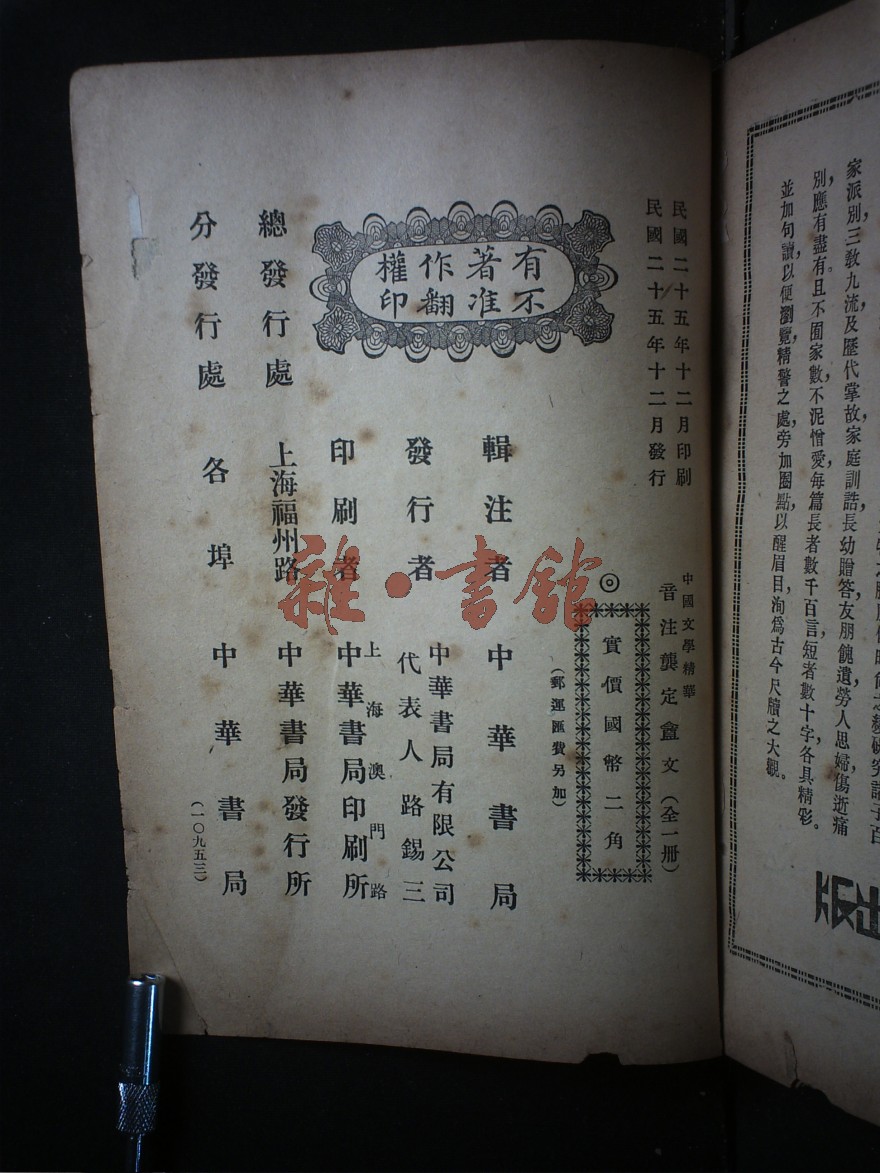 家派別三教九流及歷代掌故家庭訓誥長幼贈答友朋餽遺勞人思婦傷逝痛
別應有盡有且不囿家數不泥憎愛每篇長者數千百言短者數十字各具精彩。
並加句讀以便瀏覽精警之處旁加圈點以醒眉目洵爲古今尺牘之大觀。
民國二十五年十二月印刷
民國二十五年十二月發行
中國文學精華
音注龔定盦文(全一册)
◎實價國幣二角
(郵運匯費另加)
有著作權
不准翻印
輯注者 中華書局
發行者 中華書局有限公司
代表人 路錫三
印刷者 上海澳門路
中華書局印刷所
總發行處 上海福州路 中華書局發行所
分發行處 各埠 中華書局
(一〇九五三)
雜·書館